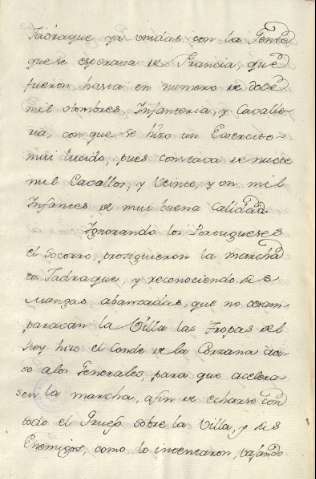 Jadraque ya unidas con la Gente
que se esperava de Francia, que
fueron hasta en numero de doze
mil Hombres, Infanteria, y Cavalle-
ria, con que se hizo un Exercito
mui lucido, pues constava de nueve
mil Cavallos, y Veinte, y un mil
Infantes de mui buena Calidad.
Ignorando los Portugueses
el socorro, prosiguieron la marcha
a Jadraque, y reconociendo
abanzadas, que no
la Villa las Tropas del
Rey hizo el Conde de la Corzana
a los Generales, para que acelera-
sen la marcha, afin de echarse con
todo el Grueso sobre la Villa, y
Enemigos, como lo intentaron, bajando